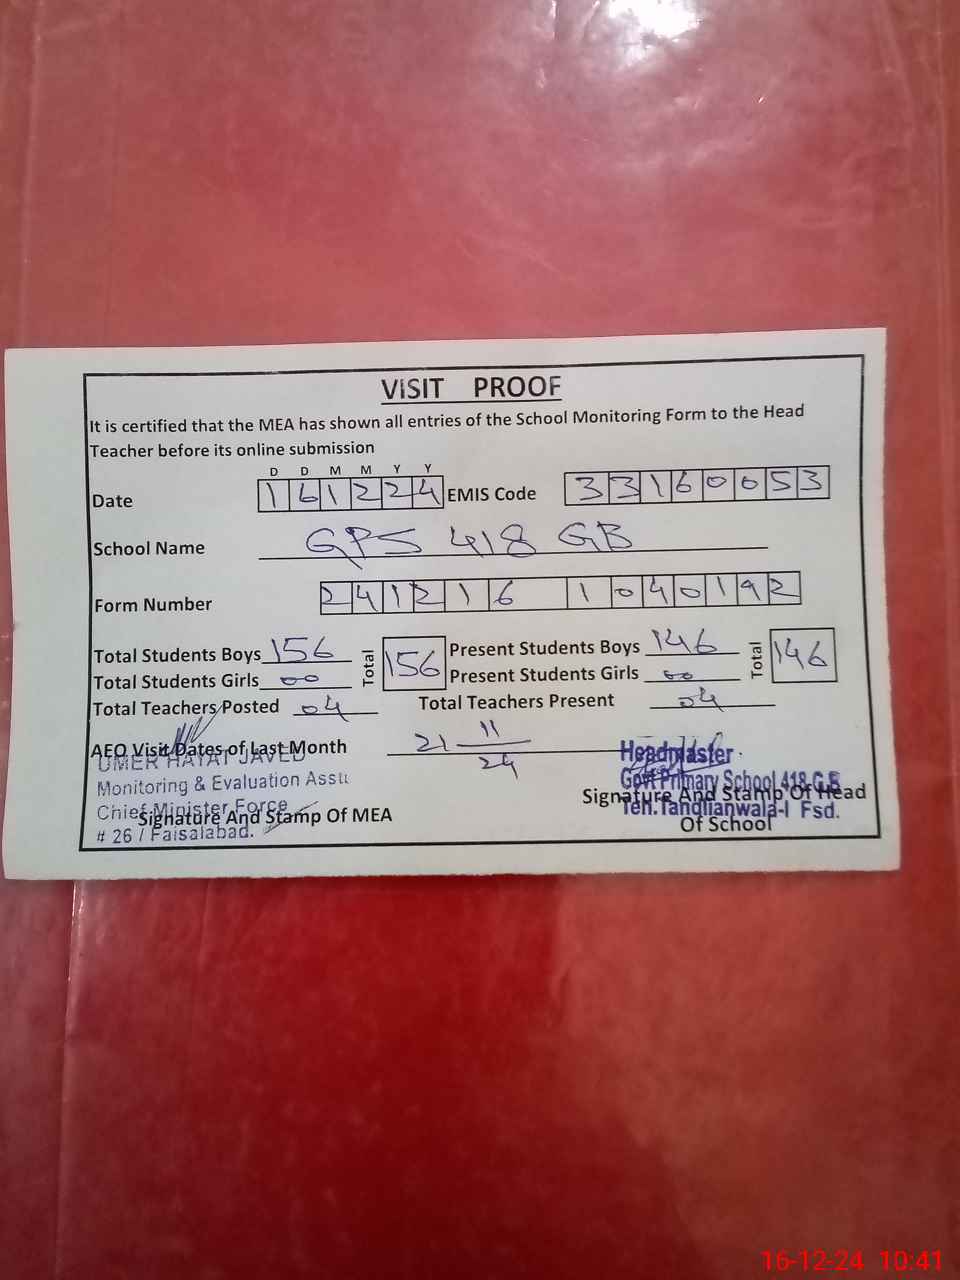 VISIT PROOF
It is certified that the MEA has shown all entries of the School Monitoring Form to the Head
Teacher before its online submission
D D M M Y Y
Date 161224 EMIS Code 33160053
School Name GPS 418 GB
Form Number 241216 1040192
Total Students Boys 156 Total 156 Present Students Boys 146 Total 146
Total Students Girls 00 Present Students Girls 00
Total Teachers Posted 04 Total Teachers Present 04
AEO Visit Dates of Last Month 21 11 24
UMER HAYAT JAVED
Monitoring & Evaluation Asstt
Chief Minister Force
# 26 / Faisalabad.
Signature And Stamp Of MEA
Headmaster
Govt Primary School 418 G.B
Teh. Tandlianwala-I Fsd.
Signature And Stamp Of Head
Of School
16-12-24 10:41